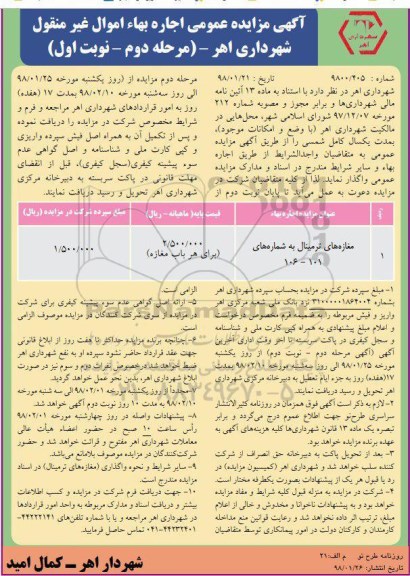 آگهی مزایده عمومی اجاره بهاء اموال غیر منقول
شهرداری اهر - (مرحله دوم - نوبت اول)
شماره : ۹۸۰۰/۲۰۵
تاریخ : ۹۸/۰۱/۲۱
شهرداری اهر در نظر دارد با استناد به ماده ۱۳ آئین نامه
مالی شهرداری‌ها و برابر مجوز و مصوبه شماره ۲۱۲
مورخه ۹۷/۱۲/۰۷ شورای اسلامی شهر، محل‌هایی در
مالکیت شهرداری اهر (با وضع و امکانات موجود)،
بمدت یکسال کامل شمسی را از طریق آگهی مزایده
عمومی به متقاضیان واجدالشرایط از طریق اجاره
بهاء و سایر شرایط مندرج در اسناد و مدارک مزایده
عمومی واگذار نماید. لذا از کلیه متقاضیان شرکت در
مزایده دعوت به عمل می‌آید تا پایان نوبت دوم از
مرحله دوم مزایده از (روز یکشنبه مورخه ۹۸/۰۱/۲۵
الی روز سه‌شنبه مورخه ۹۸/۰۲/۱۰ بمدت ۱۷ (هفده)
روز به امور قراردادهای شهرداری اهر مراجعه و فرم و
شرایط مخصوص شرکت در مزایده را دریافت نموده
و پس از تکمیل آن به همراه اصل فیش سپرده واریزی
و کپی کارت ملی و شناسنامه و اصل گواهی عدم
سوء پیشینه کیفری(سجل کیفری)، قبل از انقضای
مهلت قانونی در پاکت سربسته به دبیرخانه مرکزی
شهرداری اهر تحویل و رسید دریافت نمایند.
عنوان مزایده اجاره بهاء
قیمت پایه( ماهیانه - ریال)
مبلغ سپرده شرکت در مزایده (ریال)
۱
مغازه‌های ترمینال به شماره‌های
۱۰۱ - ۱۰۶
۲/۵۰۰/۰۰۰
(برای هر باب مغازه)
۱/۵۰۰/۰۰۰
۱- مبلغ سپرده شرکت در مزایده بحساب سپرده شهرداری اهر
بشماره ۳۱۰۰۰۰۰۱۸۶۴۰۰۲ نزد بانک ملی شعبه مرکزی اهر
واریز و فیش مربوطه را به ضمیمه فرم مخصوص درخواست
و اعلام مبلغ پیشنهادی به همراه کپی کارت ملی و شناسنامه
و سجل کیفری در پاکت سربسته تا آخر وقت اداری آخرین
آگهی (آگهی مرحله دوم - نوبت دوم) از روز یکشنبه
مورخه ۹۸/۰۱/۲۵ الی روز سه‌شنبه مورخه ۹۸/۰۲/۱۰ بمدت
۱۷(هفده) روز به جزء ایام تعطیل به دبیرخانه مرکزی شهرداری
اهر تحویل و رسید دریافت نمایند.
۲- لازم به ذکر است آگهی فوق همزمان در روزنامه کثیرالانتشار
سراسری طرح‌نو جهت اطلاع عموم درج می‌گردد و برابر
تبصره یک ماده ۱۳ قانون شهرداری‌ها کلیه هزینه‌های آگهی به
عهده برنده مزایده خواهد بود.
۳- بعد از تحویل پاکت به دبیرخانه حق انصراف از شرکت
کننده سلب خواهد شد و شهرداری اهر (کمیسیون مزایده) در
رد یا قبول هر یک از پیشنهادات بصورت یکطرفه مختار است.
۴- شرکت در مزایده به منزله قبول کلیه شرایط و مفاد مزایده
خواهد بود و به پیشنهادات ناخوانا و مخدوش و خالی از اعلام
مبلغ، ترتیب اثر داده نخواهد شد و رعایت قوانین منع مداخله
کارمندان و کارکنان دولت در امور پیمانکاری توسط متقاضیان
الزامی است.
۵- ارائه اصل گواهی عدم سوء پیشینه کیفری برای شرکت
در مزایده از سوی شرکت کنندگان در مزایده موصوف الزامی
است.
۶- چنانچه برنده مزایده حداکثر تا هفت روز از ابلاغ قانونی
جهت عقد قرارداد حاضر نشود سپرده او به نفع شهرداری اهر
ضبط خواهد شد درخصوص نفرات دوم و سوم نیز در صورت
ابلاغ شهرداری اهر، بدین نحو عمل خواهد گردید.
۹۸/۰۲/۱۰ به مدت ۱۰ روز نوبت دوم آگهی خواهد شد.
۸- پیشنهادات واصله در روز چهارشنبه مورخه ۹۸/۰۲/۱۱
رأس ساعت ۱۰ صبح در حضور اعضاء هیأت عالی
معاملات شهرداری اهر مفتوح و قرائت خواهد شد و حضور
شرکت‌کنندگان در مزایده موصوف بلامانع می‌باشد.
۹- سایر شرایط و نحوه واگذاری (مغازه‌های ترمینال) در اسناد
مزایده مندرج است.
۱۰- جهت دریافت فرم شرکت در مزایده و کسب اطلاعات
بیشتر و دریافت اسناد و مدارک مربوطه به واحد امور قراردادها
در شهرداری اهر مراجعه و یا با شماره تلفن‌های ۴۴۲۲۲۱۴۱-
۰۴۱-۴۴۲۳۲۴۰۱ تماس حاصل فرمایید.
شهردار اهر - کمال امید
روزنامه طرح نو م الف:۲۱
تاریخ انتشار: ۹۸/۰۱/۲۶